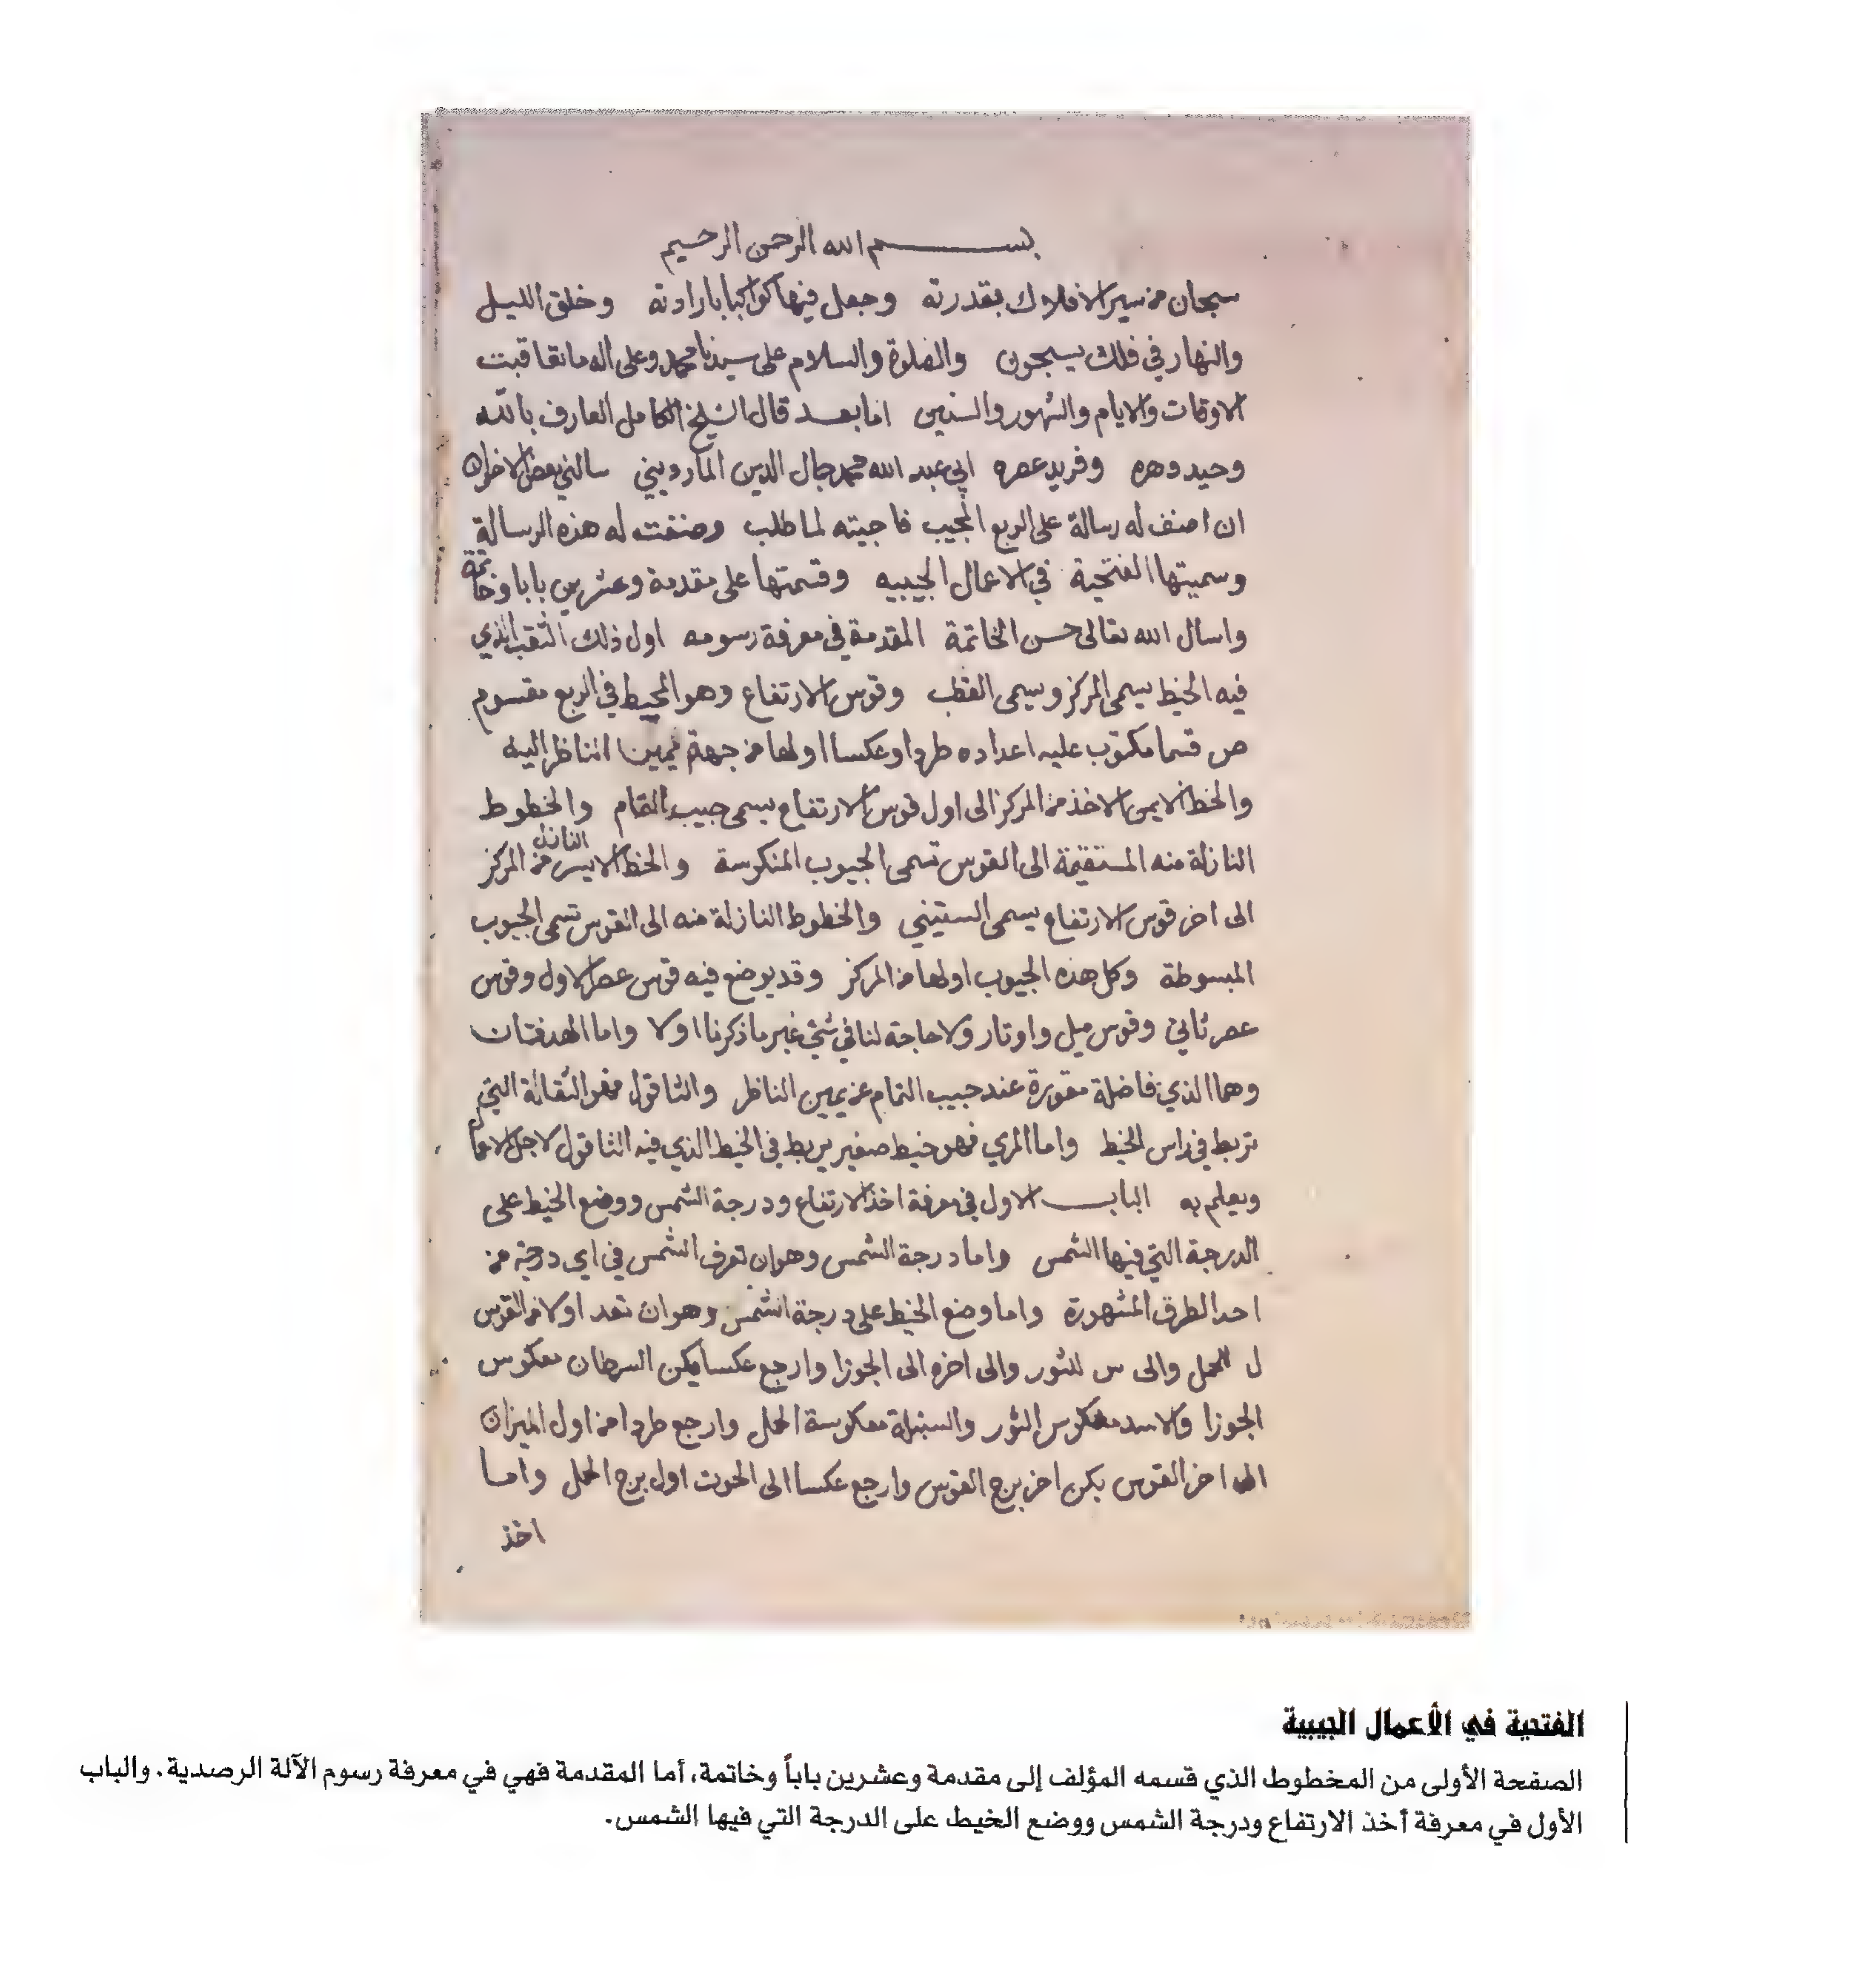 بسم الله الرحمن الرحيم
سبحان من سير الافلاك بقدرته وجعل فيها كواكبا بارادته وخلق الليل
والنهار في فلك يسبحون والصلوة والسلام على سيدنا محمد وعلى اله ما تعاقبت
الاوقات والايام والشهور والسنين اما بعد قال الشيخ الكامل العارف بالله
وحيد دهره وفريد عصره ابي عبد الله محمد جمال الدين المارديني سالني بعض الاخوان
ان اصنف له رسالة على الربع المجيب فاجبته لما طلب وصنفت له هذه الرسالة
وسميتها الفتحية في الاعمال الجيبيه وقسمتها على مقدمة وعشرين بابا وخاتمة
واسال الله تعالى حسن الخاتمة المقدمة في معرفة رسومه اول ذلك الثقب الذي
فيه الخيط يسمى المركز ويسمى القطب وقوس الارتفاع وهو المحيط في الربع مقسوم
ص قسما مكتوب عليه اعداده طردا وعكسا اولها من جهة يمين الناظر اليه
والخط الايمن الاخذ من المركز الى اول قوس الارتفاع يسمى جيب التمام والخطوط
النازلة منه المستقيمة الى القوس تسمى الجيوب المنكوسة والخط الايسر النازل من المركز
الى اخر قوس الارتفاع يسمى الستيني والخطوط النازلة منه الى القوس تسمى الجيوب
المبسوطة وكل هذه الجيوب اولها من المركز وقد يوضع فيه قوس عصر الاول وقوس
عصر ثاني وقوس ميل واوتار ولا حاجة لنا في شئ غير ما ذكرنا اولا واما الهدفتان
وهما الذي فاضلة مقورة عند جيب التمام عن يمين الناظر والثاقول فهو الثقالة التي
تربط في راس الخيط واما المري فهو خيط صغير يربط في الخيط الذي فيه الثاقول لاجل
ويعلم به الباب الاول في معرفة اخذ الارتفاع ودرجة الشمس ووضع الخيط على
الدرجة التي فيها الشمس واما درجة الشمس وهو ان تعرف الشمس في اي درجة من
احد الطرق المشهورة واما وضع الخيط على درجة الشمس وهو ان تعد اولا من القوس
ل للحمل والى س للثور والى اخره الى الجوزا وارجع عكسا يكن السرطان معكوس
الجوزا والاسد معكوس الثور والسنبلة معكوسة الحمل وارجع طردا من اول الميزان
الى اخر القوس يكن اخر برج القوس وارجع عكسا الى الحوت اول برج الحمل واما
اخذ
الفتحية في الأعمال الجيبية
الصفحة الأولى من المخطوط الذي قسمه المؤلف إلى مقدمة وعشرين باباً وخاتمة، أما المقدمة فهي في معرفة رسوم الآلة الرصدية. والباب
الأول في معرفة أخذ الارتفاع ودرجة الشمس ووضع الخيط على الدرجة التي فيها الشمس.